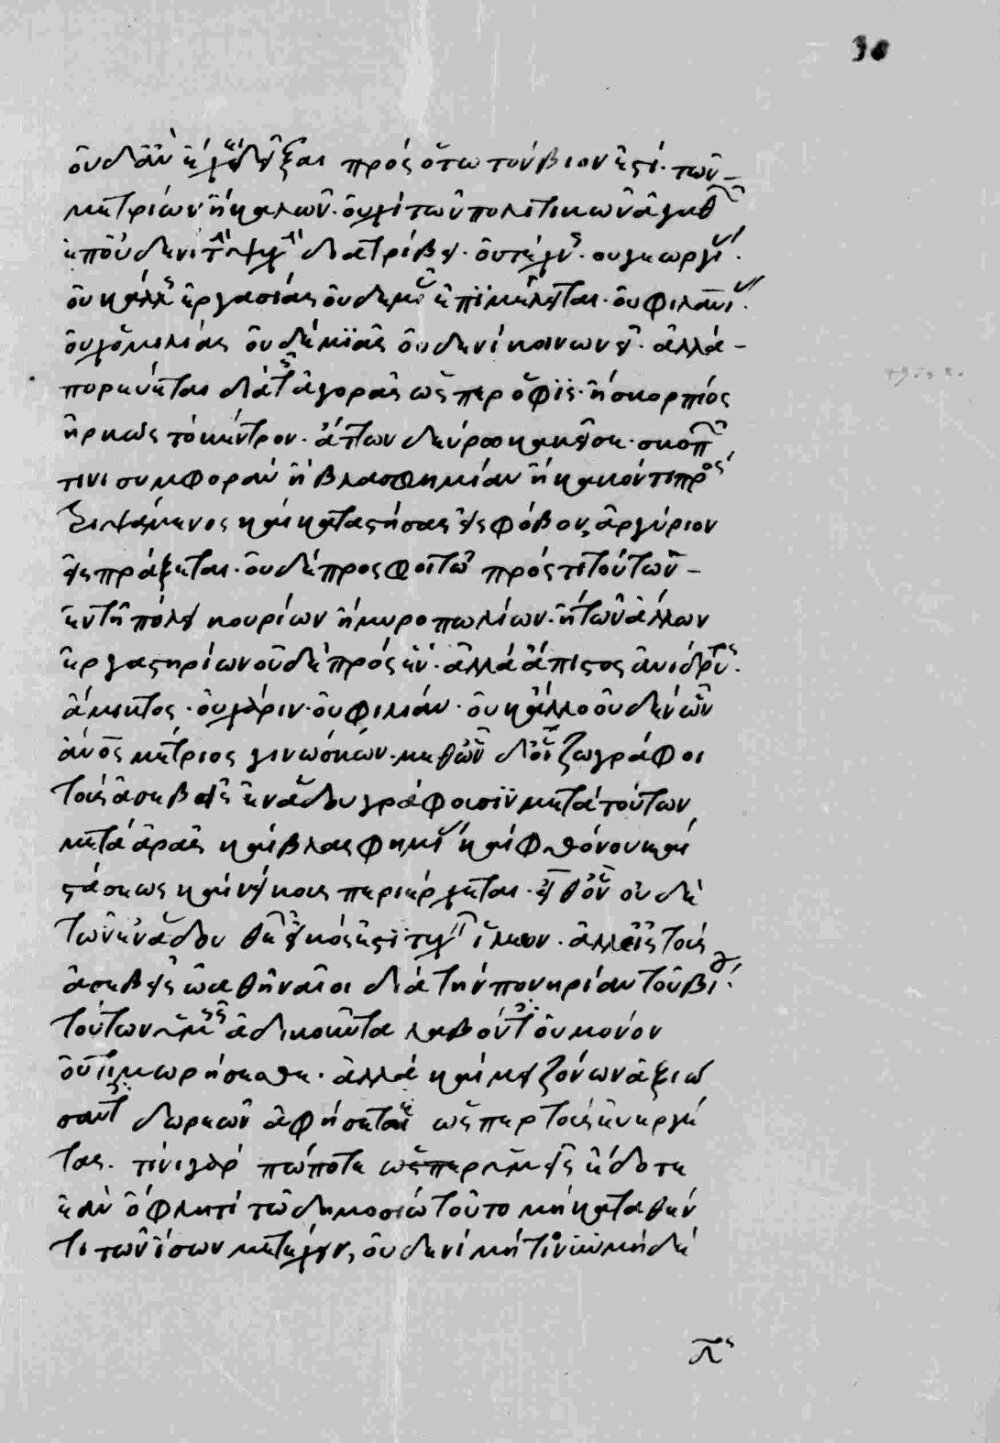 οὐδ' ἂν ἔχοι δεῖξαι πρὸς ὅτῳ τὸν βίον ἐστί. τῶν
μετρίων ἢ καλῶν. οὐχὶ τῶν πολιτικῶν ἀγαθῶν
ἐπ' οὐδενὶ τῇ ψυχῇ διατρίβει. οὐ τέχνης. οὐ γεωργίας.
οὐκ ἄλλης ἐργασίας οὐδεμιᾶς ἐπιμελεῖται. οὐ φιλανθρωπίας.
οὐχ ὁμιλίας οὐδεμιᾶς οὐδενὶ κοινωνεῖ. ἀλλὰ
πορεύεται διὰ τῆς ἀγορᾶς ὥσπερ ὄφις ἢ σκορπίος
ἠρκὼς τὸ κέντρον. ἄττων δεῦρο κἀκεῖσε. σκοπῶν
τινι συμφορὰν ἢ βλασφημίαν ἢ κακόν τι προσ
τριψάμενος καὶ καταστήσας εἰς φόβον ἀργύριον
εἰσπράξεται. οὐδὲ προσφοιτᾷ πρός τι τούτων
ἐν τῇ πόλει κουρίων ἢ μυροπωλίων. ἢ τῶν ἄλλων
ἐργαστηρίων οὐδὲ πρὸς ἕν. ἀλλὰ ἄπιστος ἀνίδρυτος.
ἄμικτος. οὐ χάριν. οὐ φιλίαν. οὐκ ἄλλο οὐδὲν ὧν
ἄνος μέτριος γινώσκων. μεθ' ὧν δ' οἱ ζωγράφοι
τοὺς ἀσεβεῖς ἐν ᾅδου γράφουσιν μετὰ τούτων
μετὰ ἀρᾶς καὶ βλασφημίας καὶ φθόνου καὶ
στάσεως καὶ νείκους περιέρχεται. εἶθ' ὃν οὐδὲ
τῶν ἐν ᾅδου θεῶν εἰκός ἐστι τυχεῖν ἵλεων. ἀλλ' εἰς τοὺς
ἀσεβεῖς ὠσθῆναι διὰ τὴν πονηρίαν τοῦ βίου.
τοῦτον ὑμεῖς ἀδικοῦντα λαβόντες οὐ μόνον
οὐ τιμωρήσεσθε. ἀλλὰ καὶ μειζόνων ἀξιώ
σαντες δωρεῶν ἀφήσετε ὥσπερ τοὺς εὐεργέ
τας. τίνι γὰρ πώποτε ὥσπερ ὑμεῖς ἔδοτε
ἐὰν ὄφλῃ τι τῷ δημοσίῳ τοῦτο μὴ καταθέν
τι τῶν ἴσων μετέχειν, οὐδενί. μὴ τοίνυν μηδὲ